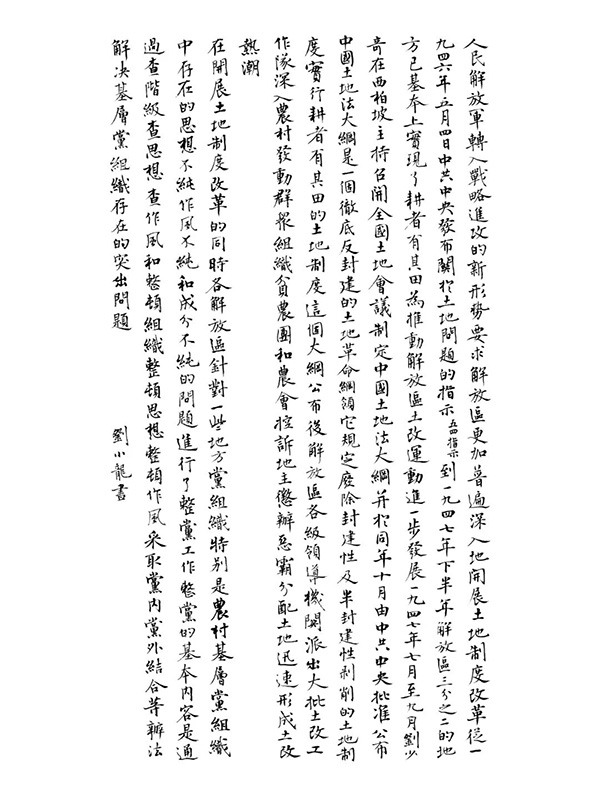 人民解放軍轉入戰略進攻的新形勢要求解放區更加普遍深入地開展土地制度改革從一
九四六年五月四日中共中央發布關於土地問題的指示五四指示到一九四七年下半年解放區三分之二的地
方已基本上實現了耕者有其田為推動解放區土改運動進一步發展一九四七年七月至九月劉少
奇在西柏坡主持召開全國土地會議制定中國土地法大綱并於同年十月由中共中央批准公布
中國土地法大綱是一個徹底反封建的土地革命綱領它規定廢除封建性及半封建性剥削的土地制
度實行耕者有其田的土地制度這個大綱公布後解放區各級領導機關派出大批土改工
作隊深入農村發動群衆組織貧農團和農會控訴地主懲辦惡霸分配土地迅速形成土改
熱潮
在開展土地制度改革的同時各解放區針對一些地方黨組織特别是農村基層黨組織
中存在的思想不純作風不純和成分不純的問題進行了整黨工作整黨的基本内容是通
過查階級查思想查作風和整頓組織整頓思想整頓作風采取黨内黨外結合等辦法
解决基層黨組織存在的突出問題 劉小龍書